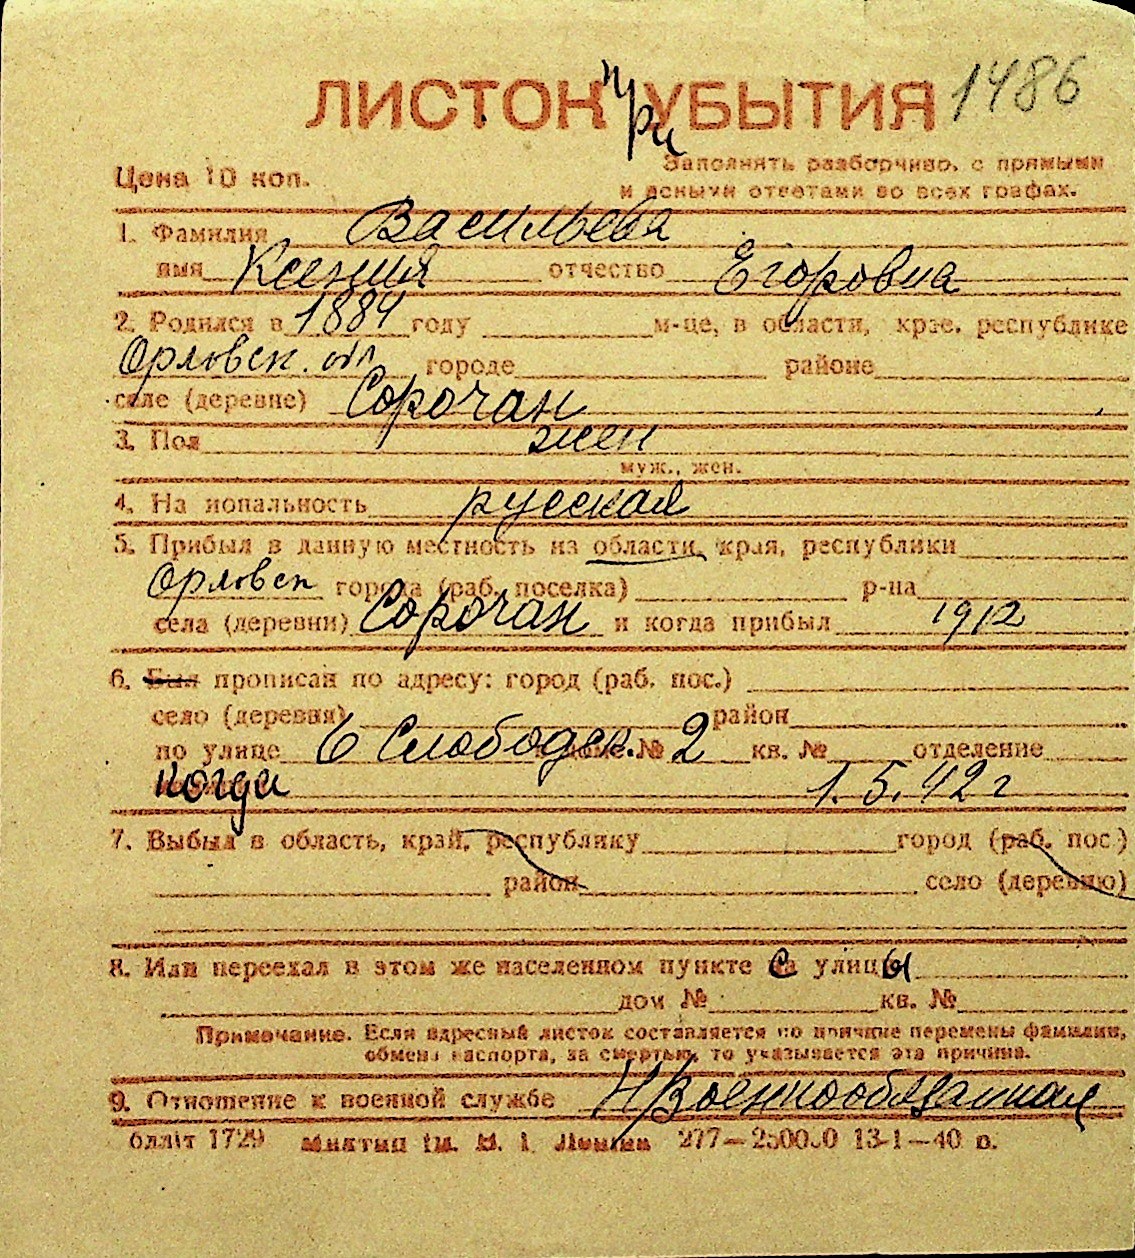 ЛИСТОК при УБЫТИЯ 1486
Цена 10 коп.
Заполнять разборчиво, с прямыми
и ясными ответами во всех графах.
1. Фамилия Васильева
имя Ксения отчество Егоровна
2. Родился в 1884 году м-це, в области, крае, республике
Орловск. обл городе районе
селе (деревне) Сорочан
3. Пол жен
муж., жен.
4. На иональность русская
5. Прибыл в данную местность из области, края, республики
Орловск города (раб. поселка) р-на
села (деревни) Сорочан и когда прибыл 1912
6. Был прописан по адресу: город (раб. пос.)
село (деревня) район
по улице 6 Слободск. доме № 2 кв. № отделение
когда 1.5.42 г
7. Выбыл в область, край, республику город (раб. пос.)
район село (деревню)
8. Или переехал в этом же населенном пункте с улицы
дом № кв. №
Примечание. Если адресный листок составляется по причине перемены фамилии,
обмена паспорта, за смертью, то указывается эта причина.
9. Отношение к военной службе Н/Военнообязанная
1729 им. В. І. Леніна 277—250000 13-1—40 в.